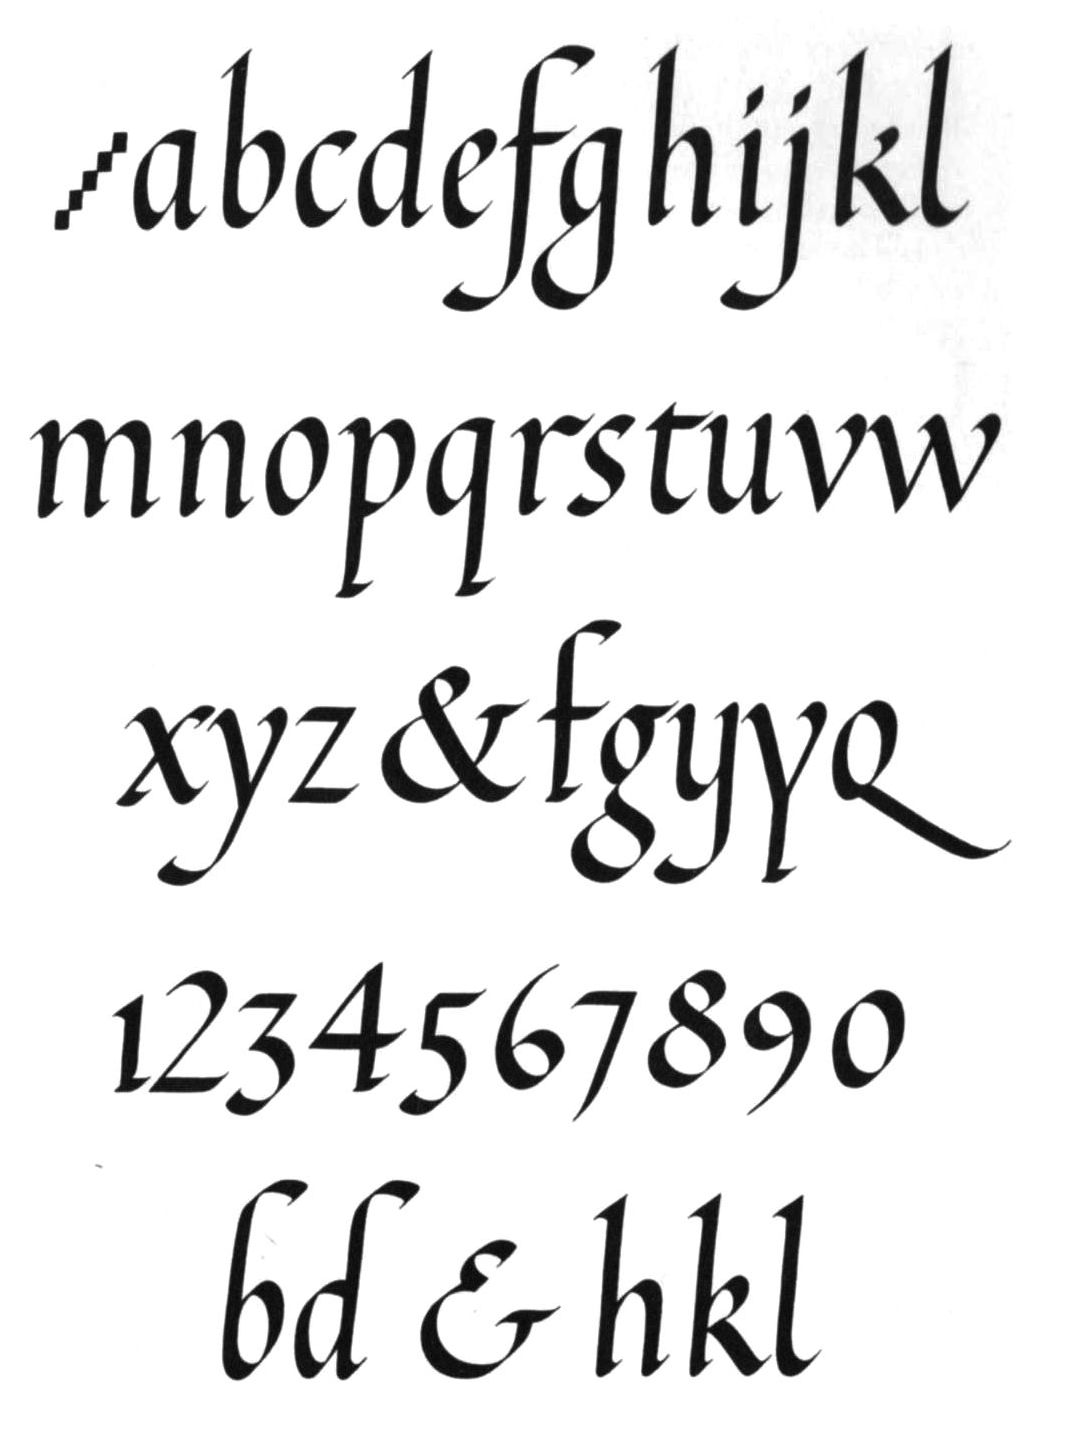 abcdefghijkl
mnopqrstuvw
xyz&fgyyQ
1234567890
bd & hkl